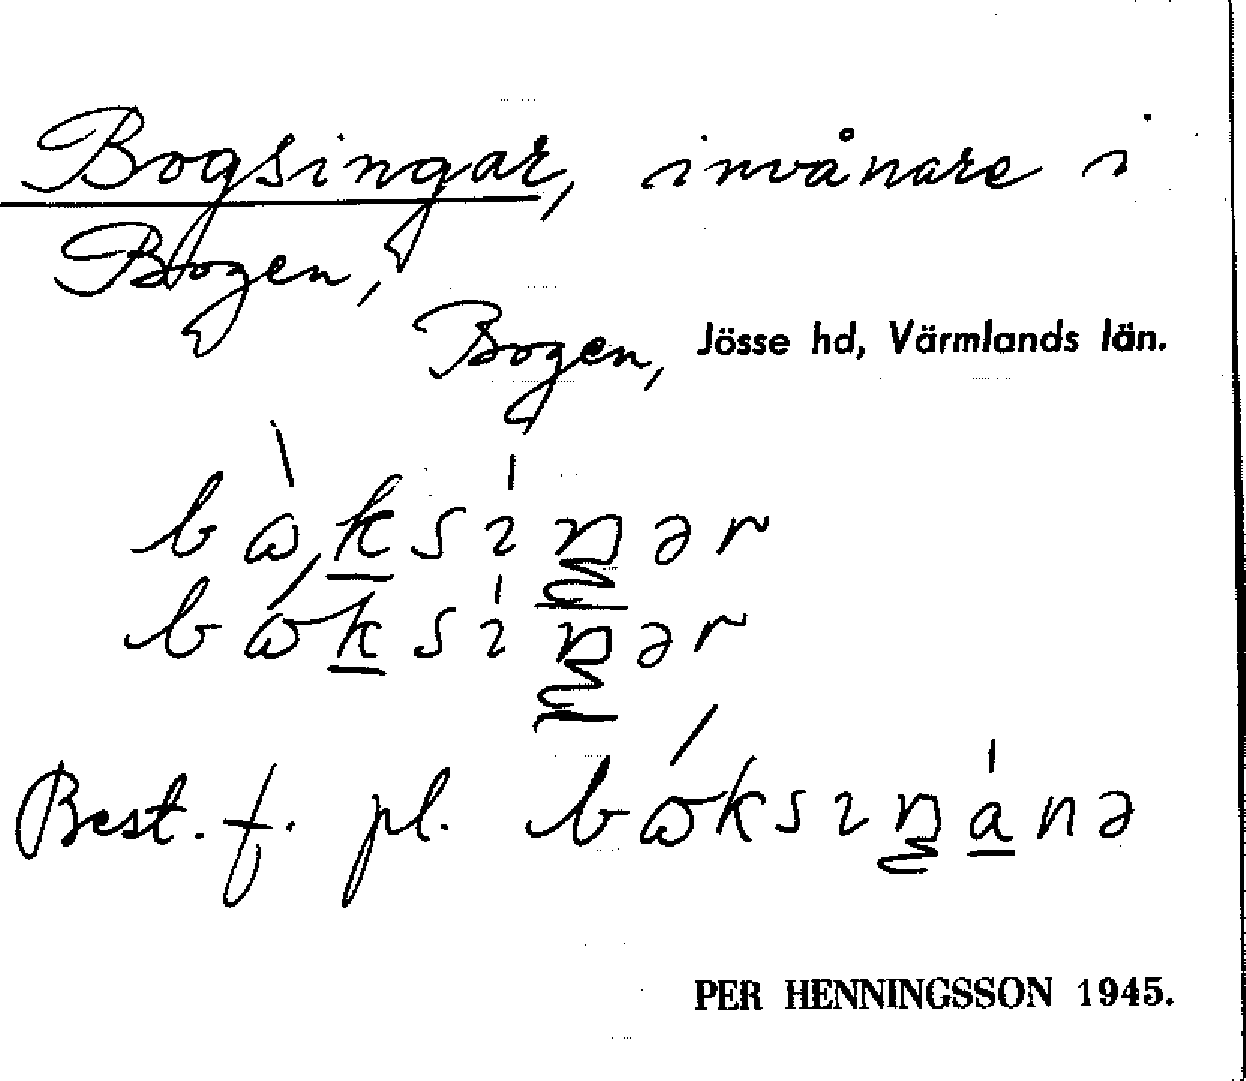 Bogsingar, invånare i
Bogen,
Bogen, Jösse hd, Värmlands län.
Best. f. pl.
PER HENNINGSSON 1945.